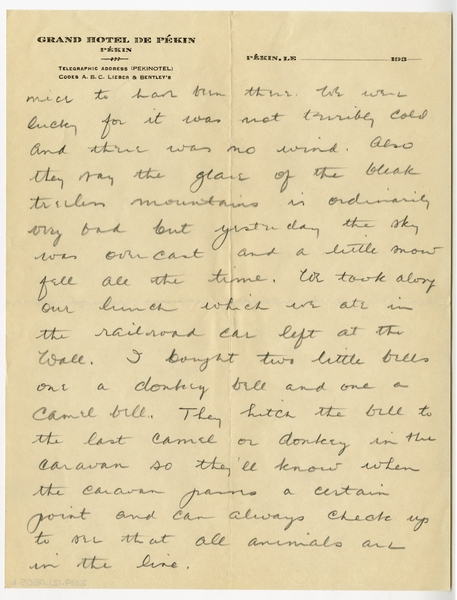 GRAND HOTEL DE PÉKIN
PÉKIN
TELEGRAPHIC ADDRESS (PEKINOTEL)
CODES A. B. C. LIEBER & BENTLEY'S
PÉKIN, LE 193
nice to have been there. We were
lucky for it was not terribly cold
and there was no wind. Also
they say the glare of the bleak
treeless mountains is ordinarily
very bad but yesterday the sky
was overcast and a little snow
fell all the time. We took along
our lunch which we ate in
the railroad car left at the
Wall. I bought two little bells
one a donkey bell and one a
camel bell. They hitch the bell to
the last camel or donkey in the
caravan so they'll know when
the caravan passes a certain
point and can always check up
to see that all animals are
in the line.